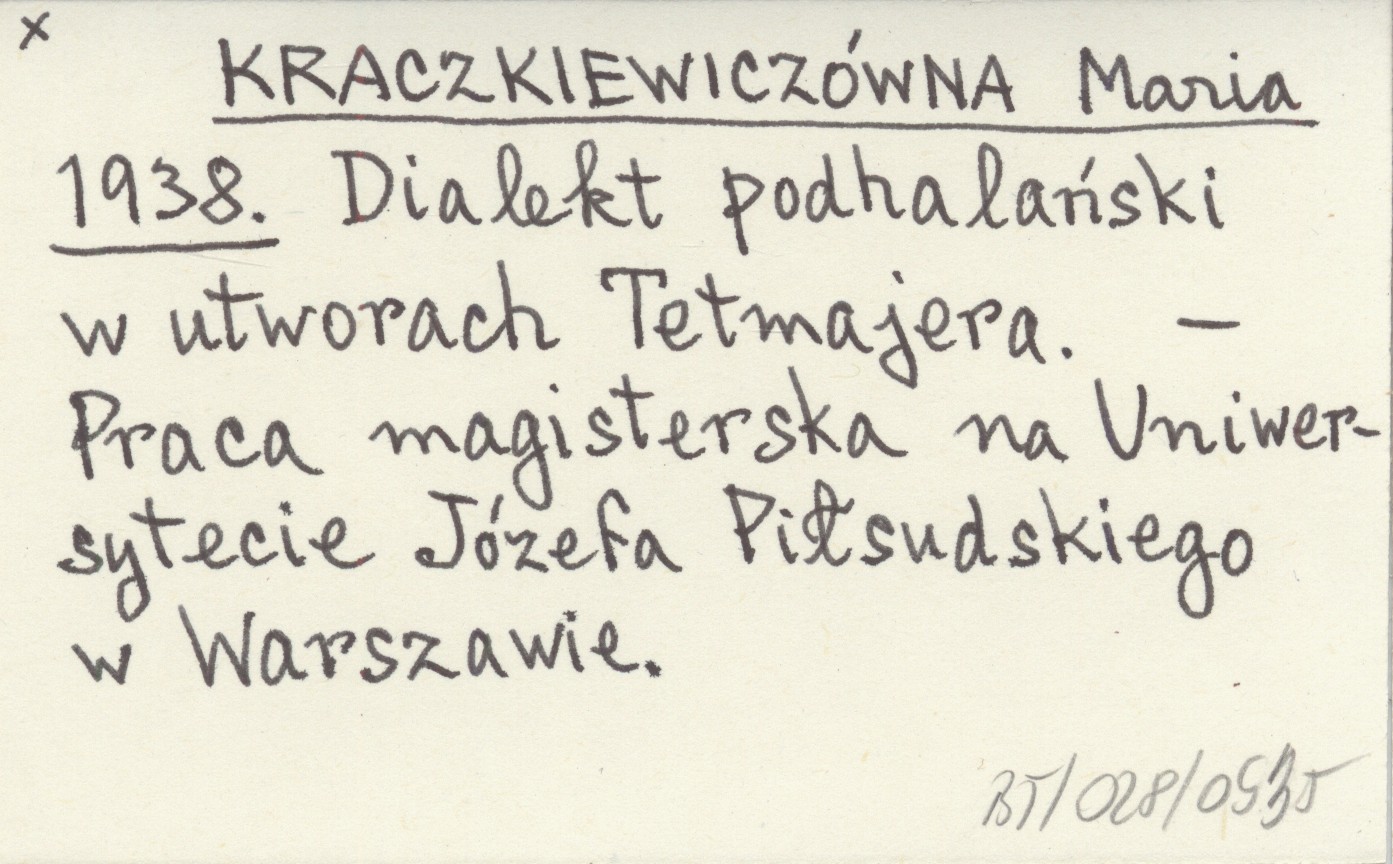 x
KRACZKIEWICZÓWNA Maria
1938. Dialekt podhalański
w utworach Tetmajera. —
Praca magisterska na Uniwer-
sytecie Józefa Piłsudskiego
w Warszawie.
BT/028/0535